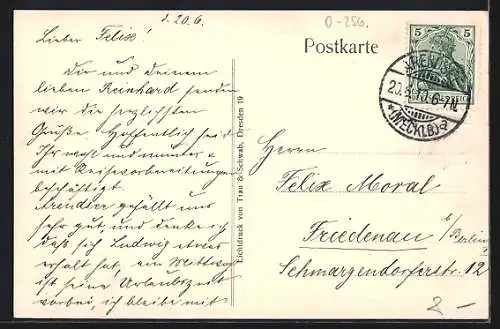 d. 20.6.
0-256.
Lieber Felix!
Postkarte
5 5
Dir und Deinem
lieben Reinhard senden
wir die herzlichsten
Grüße. Hoffentlich seid
Ihr wohl und munter u.
mit Reisevorbereitungen
beschäftigt.
Arendsee gefällt uns
sehr gut, und denke ich
daß sich Ludwig etwas
erholt hat, am Mittwoch
ist seine Urlaubszeit
vorbei, ich bleibe mit
Lichtdruck von Trau & Schwab, Dresden 19
ARENDSEE
(MECKLB) a
Herrn
Felix Moral
Friedenau b/Berlin
Schmargendorferstr. 12
2-